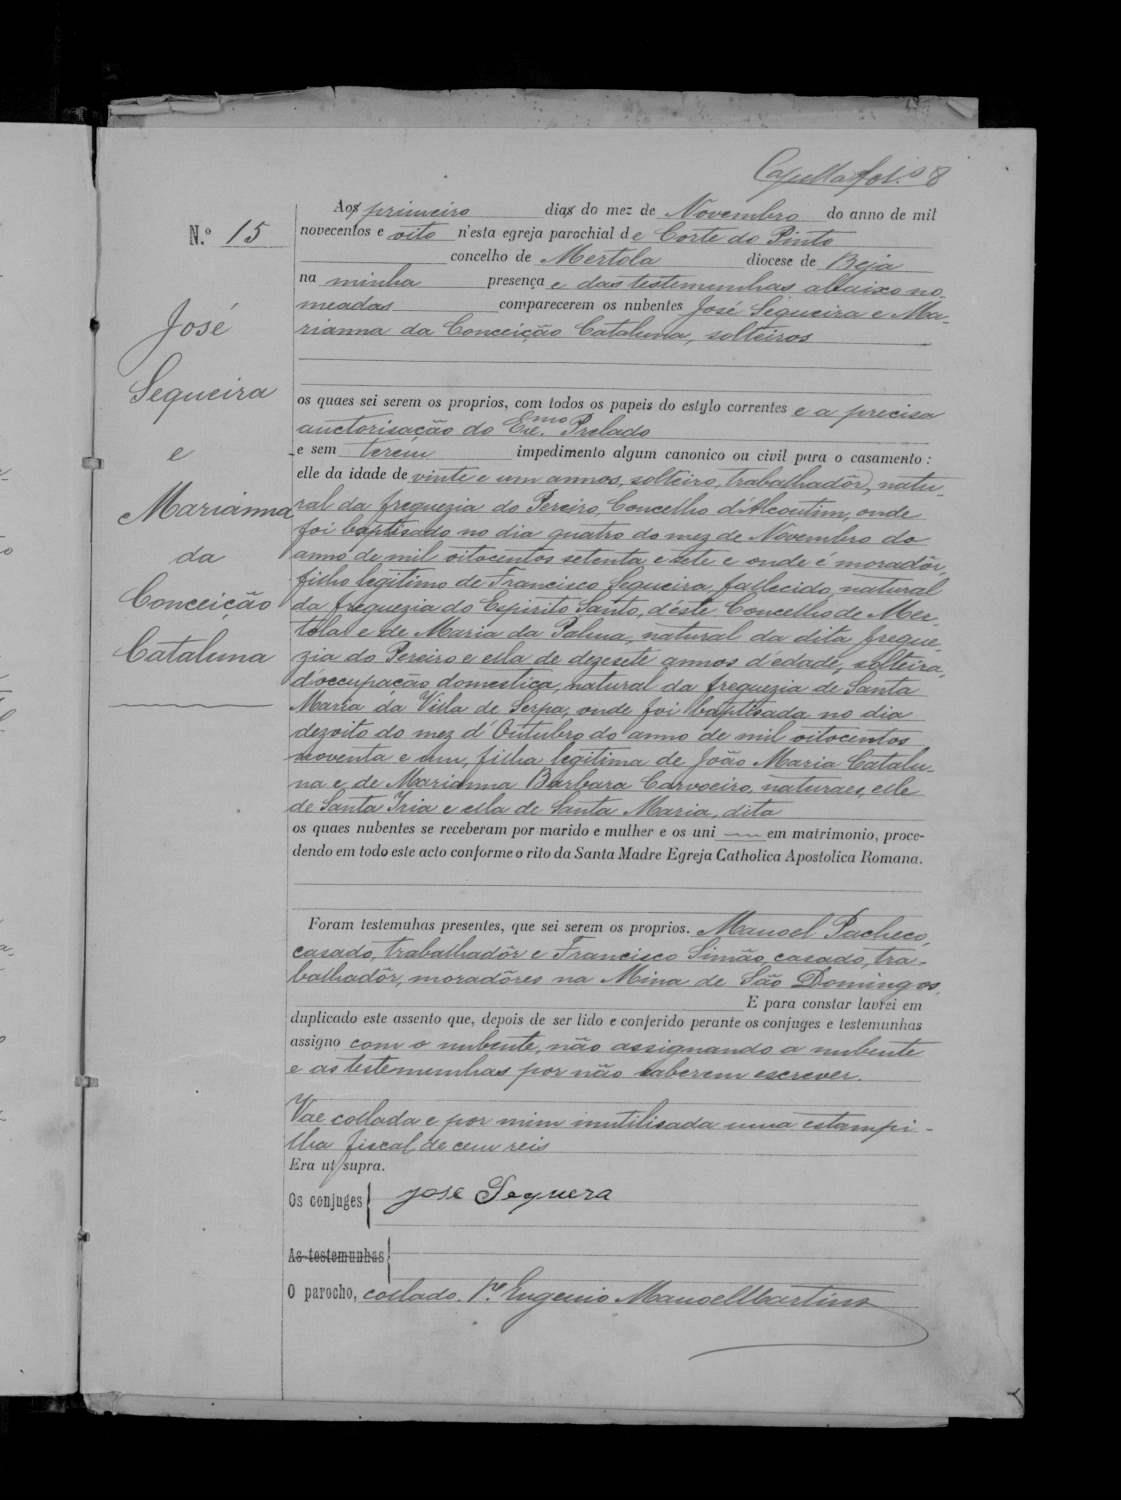 fol.s 8
Aos primeiro dias do mez de Novembro do anno de mil
N.º 15
novecentos e oito n'esta egreja parochial de Corte do Pinto
concelho de Mertola diocese de Beja
na minha presença e das testemunhas abaixo no-
meadas comparecerem os nubentes José Sequeira e Ma-
rianna da Conceição Cataluna, solteiros
José
Sequeira
e
Marianna
da
Conceição
Cataluna
os quaes sei serem os proprios, com todos os papeis do estylo correntes e a precisa
auctorisação do Exc.mo Prelado
e sem terem impedimento algum canonico ou civil para o casamento:
elle da idade de vinte e um annos, solteiro, trabalhadôr, natu-
ral da freguezia do Pereiro, Concelho d'Alcoutim, onde
foi baptisado no dia quatro do mez de Novembro do
anno de mil oitocentos setenta e sete e onde é moradôr,
filho legitimo de Francisco Sequeira, fallecido, natural
da freguezia do Espirito Santo, d'éste Concelho de Mer-
tola e de Maria da Palma, natural da dita fregue-
zia do Pereiro e ella de dezesete annos d'edade, solteira,
d'occupação domestica, natural da freguezia de Santa
Maria da Villa de Serpa, onde foi baptisada no dia
dezoito do mez d'Outubro do anno de mil oitocentos
noventa e um, filha legitima de João Maria Catalu-
na e de Marianna Barbara Carvoeiro, naturaes, elle
de Santa Iria e ella de Santa Maria, dita
os quaes nubentes se receberam por marido e mulher e os uni em matrimonio, proce-
dendo em todo este acto conforme o rito da Santa Madre Egreja Catholica Apostolica Romana.
Foram testemuhas presentes, que sei serem os proprios. Manoel Pacheco,
casado, trabalhadôr e Francisco Simão, casado, tra-
balhadôr, moradôres na Mina de São Domingos.
E para constar lavrei em
duplicado este assento que, depois de ser lido e conferido perante os conjuges e testemunhas
assigno com o nubente, não assignando a nubente
e as testemunhas por não saberem escrever.
Vae collada e por mim inutilisada uma estampi-
lha fiscal de cem reis
Era ut supra.
Os conjuges José Sequera
As testemunhas
O parocho, collado. P.e Eugenio Manoel Martins